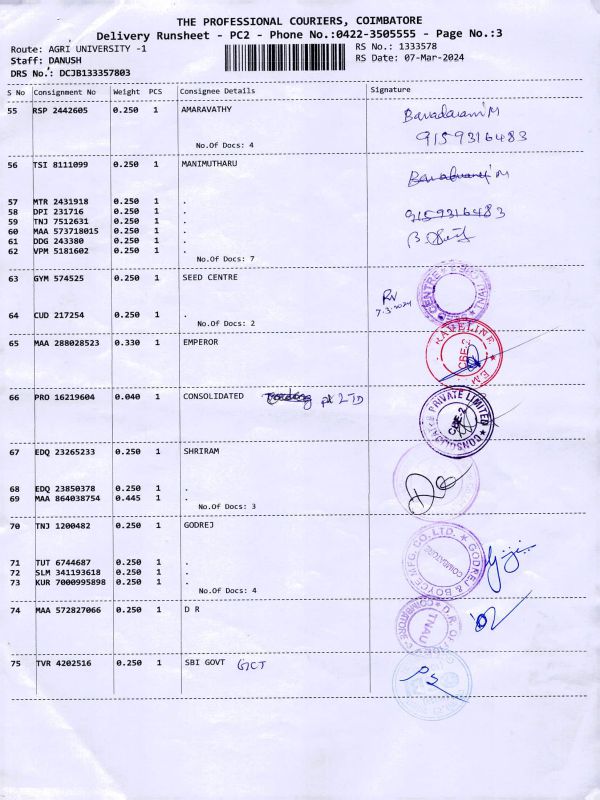 THE PROFESSIONAL COURIERS, COIMBATORE
Delivery Runsheet - PC2 - Phone No.:0422-3505555 - Page No.:3
Route: AGRI UNIVERSITY -1 RS No.: 1333578
Staff: DANUSH RS Date: 07-Mar-2024
DRS No.: DCJB133357803
S No Consignment No Weight PCS Consignee Details Signature
55 RSP 2442605 0.250 1 AMARAVATHY
9159316483
No.Of Docs: 4
56 TSI 8111099 0.250 1 MANIMUTHARU
57 MTR 2431918 0.250 1 .
58 DPI 231716 0.250 1 . 9159316483
59 TNJ 7512631 0.250 1 .
60 MAA 573718015 0.250 1 .
61 DDG 243380 0.250 1 .
62 VPM 5181602 0.250 1 .
No.Of Docs: 7
63 GYM 574525 0.250 1 SEED CENTRE
7.3.2024
64 CUD 217254 0.250 1 .
No.Of Docs: 2
65 MAA 288028523 0.330 1 EMPEROR
66 PRO 16219604 0.040 1 CONSOLIDATED LTD
PRIVATE LIMITED
CBE-2
67 EDQ 23265233 0.250 1 SHRIRAM
68 EDQ 23850378 0.250 1 .
69 MAA 864038754 0.445 1 .
No.Of Docs: 3
70 TNJ 1200482 0.250 1 GODREJ
GODREJ & BOYCE MFG. CO. LTD.
COIMBATORE
71 TUT 6744687 0.250 1 .
72 SLM 341193618 0.250 1 .
73 KUR 7000995898 0.250 1 .
No.Of Docs: 4
74 MAA 572827066 0.250 1 D R
TNAU
COIMBATORE
75 TVR 4202516 0.250 1 SBI GOVT GCT